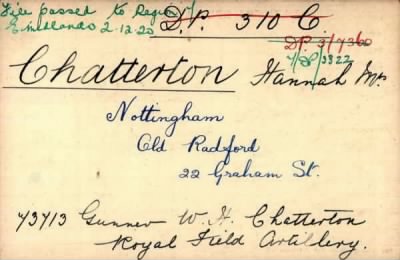 File passed to Region
E midlands 2-12-20
D.P. 310 C
D.P. 3/7360
3822
Chatterton Hannah Mrs
Nottingham
Old Radford
22 Graham St.
73713 Gunner W. H. Chatterton
Royal Field Artillery.